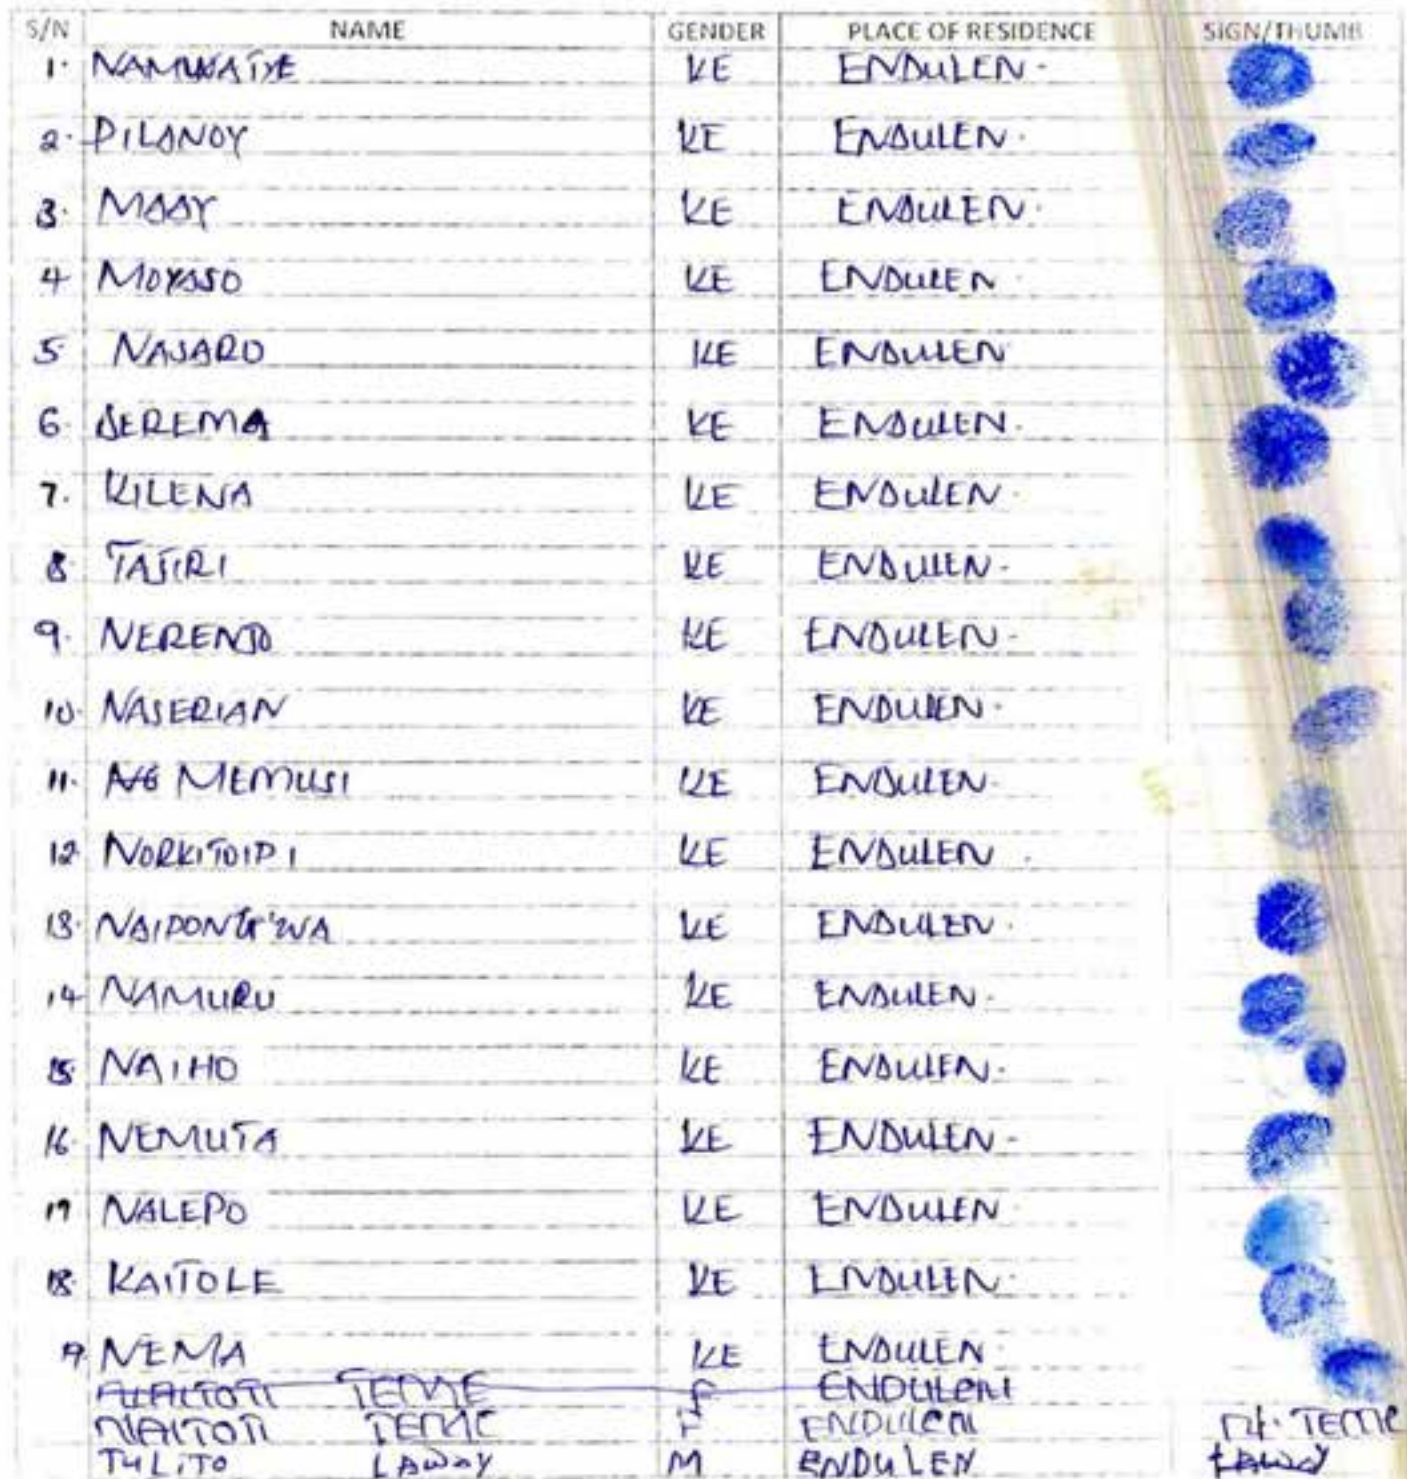 S/N NAME GENDER PLACE OF RESIDENCE SIGN/THUMB
1. NAMNYATYE KE ENDULEN.
2. PILANOY KE ENDULEN.
3. MAAY KE ENDULEN.
4 MOYASO KE ENDULEN
5 NAJARO KE ENDULEN
6. SEREMA KE ENDULEN.
7. KILENA KE ENDULEN.
8 TAJIRI KE ENDULEN.
9. NERENJO KE ENDULEN.
10. NASERIAN KE ENDULEN.
11. MEMUSI KE ENDULEN.
12 NORKITOIPI KE ENDULEN.
13. NAIPONG'WA KE ENDULEN.
14 NAMURU KE ENDULEN.
15 NAIHO KE ENDULEN.
16. NEMUTA KE ENDULEN.
17 NALEPO KE ENDULEN.
18. KAITOLE KE ENDULEN.
19. NEMA KE ENDULEN.
TEME ENDULEN
NAITOTI TEME F ENDULEN N. TEME
TULITO LAWAY M ENDULEN LAWAY